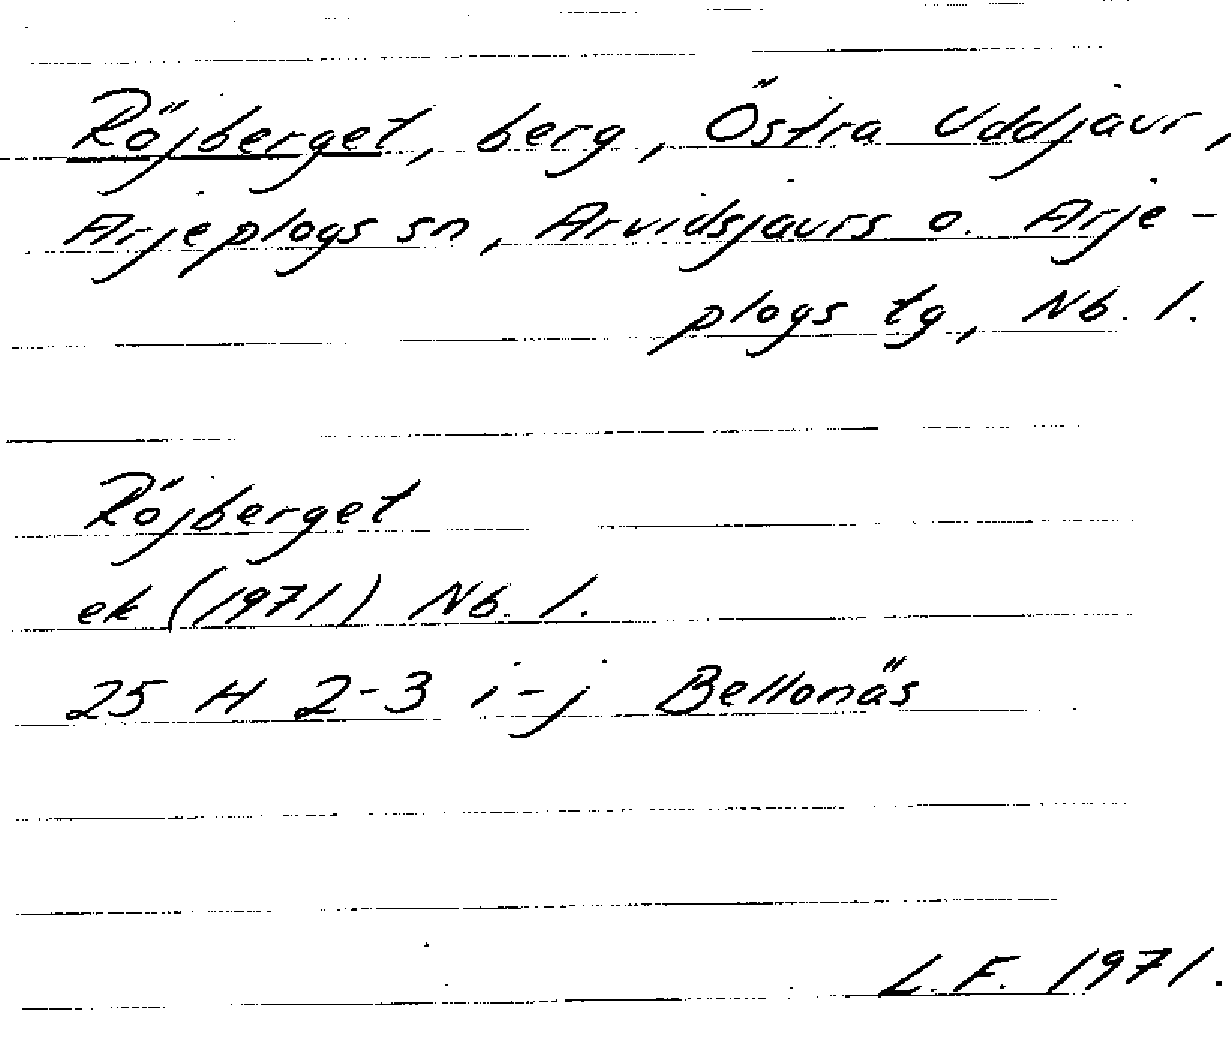 Röjberget, berg, Östra Uddjaur,
Arjeplogs sn, Arvidsjaurs o. Arje-
plogs tg, Nb. l.
Röjberget
ek (1971) Nb. l.
25 H 2-3 i-j Bellonäs
L.F. 1971.